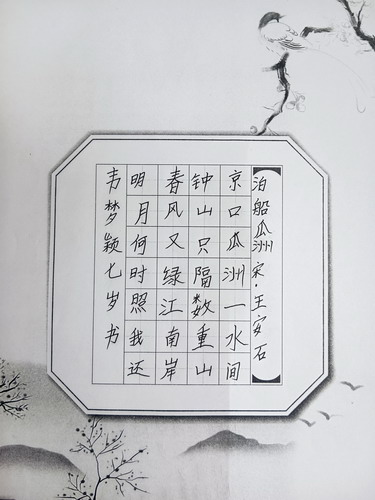 泊船瓜洲 宋·王安石
京口瓜洲一水间
钟山只隔数重山
春风又绿江南岸
明月何时照我还
韦梦颖七岁书